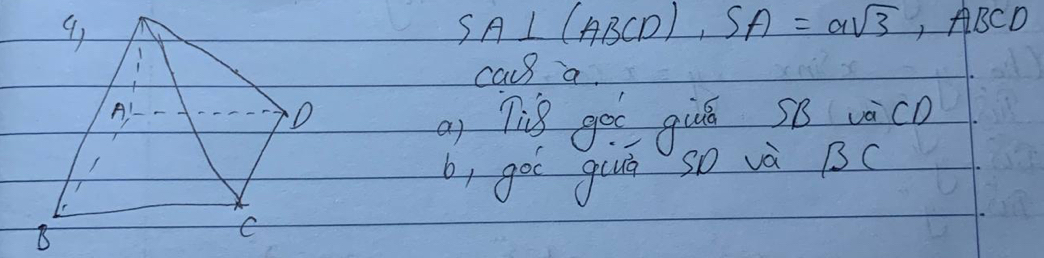 4, SA ⊥ (ABCD), SA = a√3, ABCD
cạnh a.
a) Tính góc giữa SB và CD
b, góc giữa SD và BC
A
D
B
C